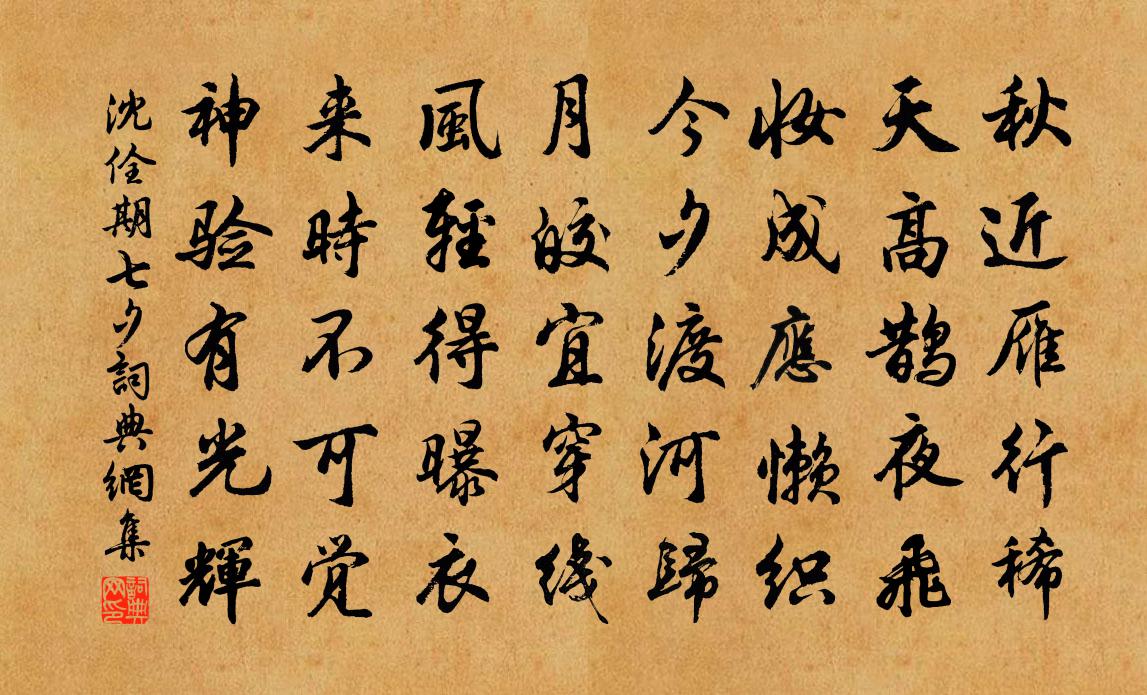 秋近雁行稀
天高鹊夜飛
妆成應懒织
今夕渡河歸
月皎宜穿线
風輕得曝衣
来時不可觉
神验有光輝
沈佺期七夕詞典網集
詞典网印